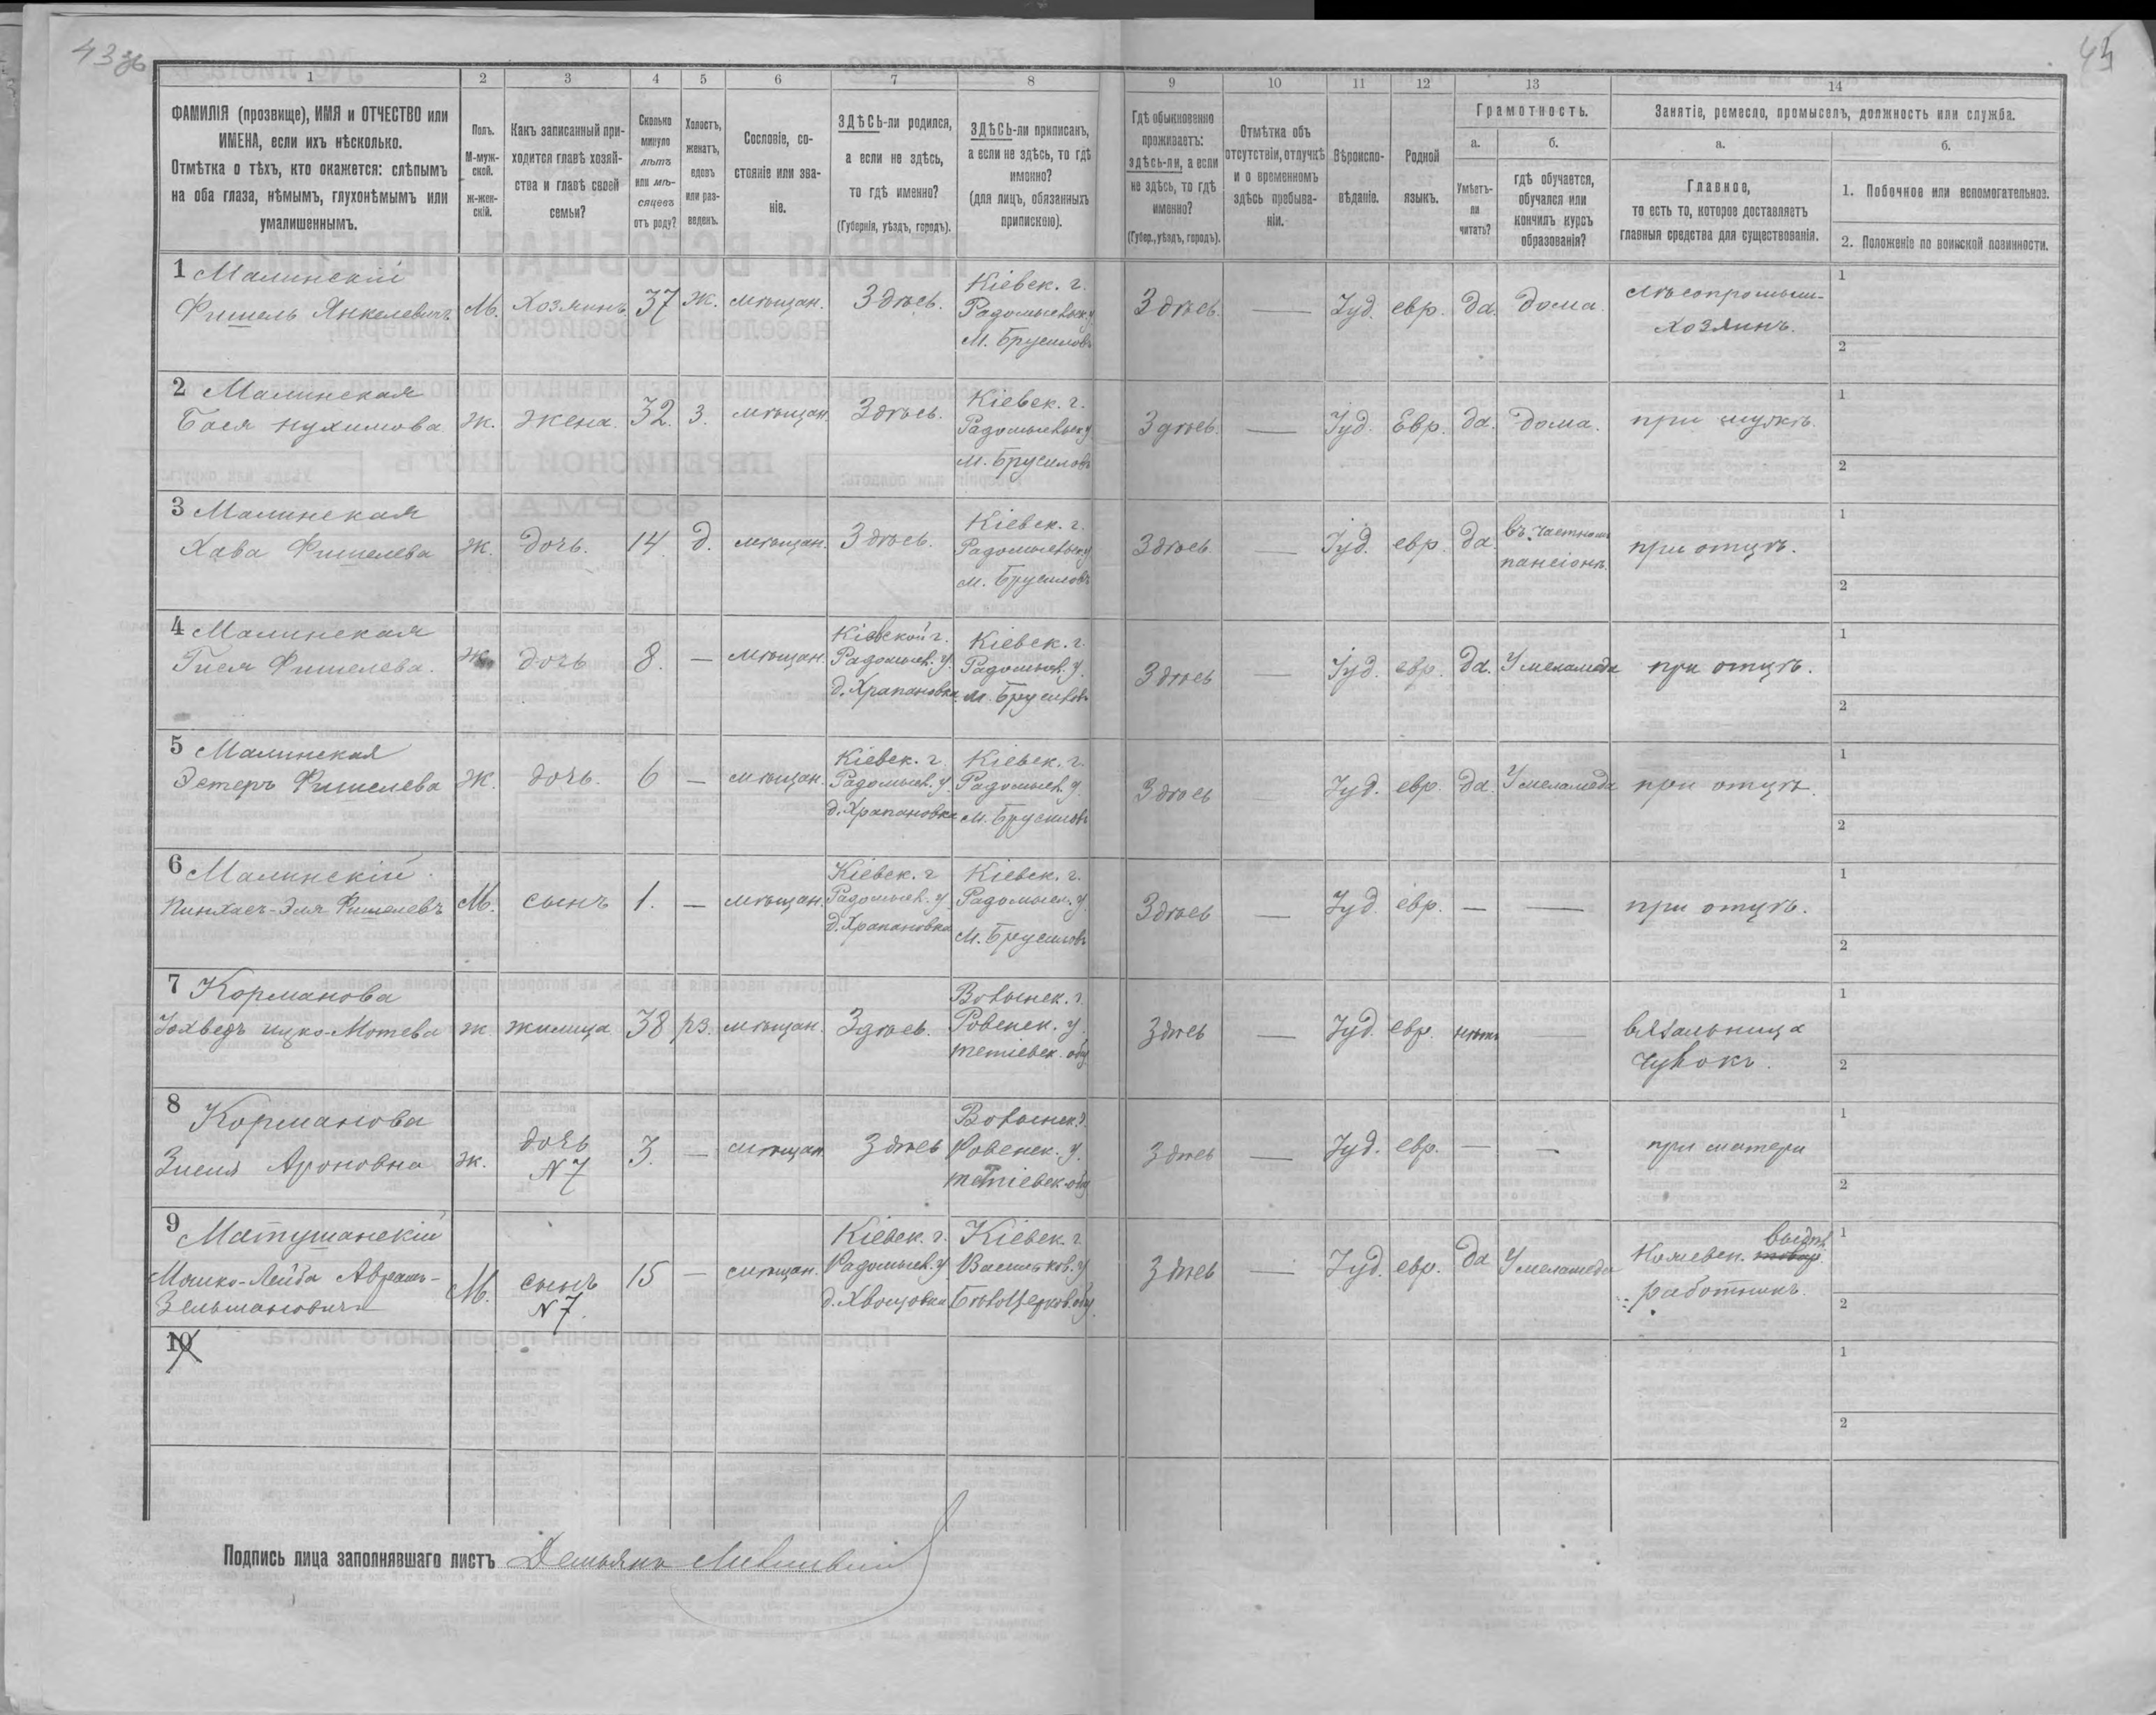 43 об
45
1
2
3
4
5
6
7
8
9
10
11
12
13
14
ФАМИЛІЯ (прозвище), ИМЯ и ОТЧЕСТВО или
ИМЕНА, если ихъ нѣсколько.
Отмѣтка о тѣхъ, кто окажется: слѣпымъ
на оба глаза, нѣмымъ, глухонѣмымъ или
умалишеннымъ.
Полъ.
М-муж-
ской.
Ж-жен-
скій.
Какъ записанный при-
ходится главѣ хозяй-
ства и главѣ своей
семьи?
Сколько
минуло
лѣтъ
или мѣ-
сяцевъ
отъ роду?
Холостъ,
женатъ,
вдовъ
или раз-
веденъ.
Сословіе, со-
стояніе или зва-
ніе.
ЗДѢСЬ-ли родился,
а если не здѣсь,
то гдѣ именно?
(Губернія, уѣздъ, городъ).
ЗДѢСЬ-ли приписанъ,
а если не здѣсь, то гдѣ
именно?
(для лицъ, обязанныхъ
припискою).
Гдѣ обыкновенно
проживаетъ:
здѣсь-ли, а если
не здѣсь, то гдѣ
именно?
(Губер., уѣздъ, городъ).
Отмѣтка объ
отсутствіи, отлучкѣ
и о временномъ
здѣсь пребыва-
ніи.
Вѣроиспо-
вѣданіе.
Родной
языкъ.
Грамотность.
а.
б.
Умѣетъ-
ли
читать?
гдѣ обучается,
обучался или
кончилъ курсъ
образованія?
Занятіе, ремесло, промыселъ, должность или служба.
а.
б.
Главное,
то есть то, которое доставляетъ
главныя средства для существованія.
1. Побочное или вспомогательное.
2. Положеніе по воинской повинности.
1 Малинскій
Фишель Янкелевичъ
М.
Хозяинъ
37
ж.
мѣщан.
Здѣсь.
Кіевск. г.
Радомысльск. у
м. Брусиловъ
Здѣсь.
—
Іуд.
евр.
да.
дома.
лѣсопромыш-
хозяинъ.
1
2
2 Малинская
Бася Нухимова
ж.
жена.
32.
з.
мѣщан.
Здѣсь.
Кіевск. г.
Радомысльск. у
м. Брусиловъ
Здѣсь.
—
Іуд.
Евр.
да.
дома.
при мужѣ.
1
2
3 Малинская
Хава Фишелева
ж.
дочь.
14
д.
мѣщан.
Здѣсь.
Кіевск. г.
Радомысльск. у
м. Брусиловъ
Здѣсь
—
Іуд.
евр.
да.
въ частномъ
пансіонѣ.
при отцѣ.
1
2
4 Малинская
Гися Фишелева.
ж.
дочь
8.
—
мѣщан.
Кіевской г.
Радомысл. у
д. Храпановка
Кіевск. г.
Радомысл. у.
м. Брусиловъ
Здѣсь
—
Іуд.
евр.
да.
У меламеда
при отцѣ.
1
2
5 Малинская
Эстеръ Фишелева
ж.
дочь.
6
—
мѣщан.
Кіевск. г.
Радомысл. у.
д. Храпановка
Кіевск. г.
Радомысл. у.
м. Брусиловъ
Здѣсь
—
Іуд.
евр.
да.
У меламеда
при отцѣ.
1
2
6 Малинскій
Пинхасъ-Эля Фишелевъ
М.
сынъ
1.
—
мѣщан.
Кіевск. г
Радомысл. у
д. Храпановка
Кіевск. г.
Радомысл. у.
м. Брусиловъ
Здѣсь
—
Іуд.
евр.
—
—
при отцѣ.
1
2
7 Корманова
Іохведъ Ицко-Мотева
ж.
жилица
38
рз.
мѣщан.
Здѣсь.
Волынск. г.
Ровенск. у.
Здѣсь
—
Іуд.
евр.
нѣтъ
—
вязальница
чулокъ.
1
2
8 Корманова
Зисля Ароновна
ж.
дочь
N 7
3.
—
мѣщан
Здѣсь
Волынск. г.
Ровенск. у.
Здѣсь
—
Іуд.
евр.
—
—
при матери
1
2
9 Матушанскій
Мошко-Лейба Аврамъ-
Зельмановичъ
М.
сынъ
N 7.
15
—
мѣщан.
Кіевск. г.
Радомысл. у
д. Хвощовка
Кіевск. г.
Васильков. у
Бѣлоцерков. общ.
Здѣсь
—
Іуд.
евр.
да
У меламеда
выдѣл.
Кожевен. товар.
работникъ.
1
2
10
1
2
Подпись лица заполнявшаго листъ Демьянъ